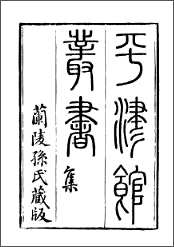 平津館
叢書
集
蘭陵孫氏藏版